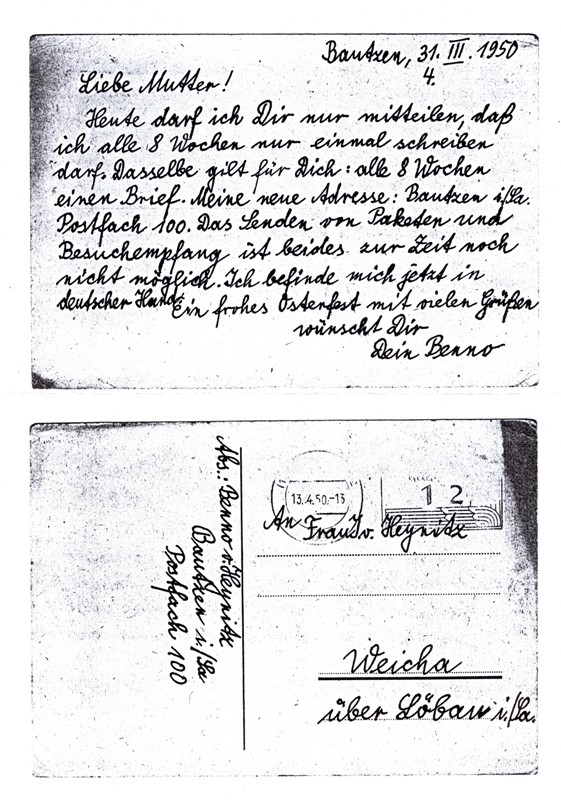 Bautzen, 31. III. 1950
4.
Liebe Mutter!
Heute darf ich Dir nur mitteilen, daß
ich alle 8 Wochen nur einmal schreiben
darf. Dasselbe gilt für Dich: alle 8 Wochen
einen Brief. Meine neue Adresse: Bautzen i/Sa.
Postfach 100. Das Senden von Paketen und
Besuchempfang ist beides zur Zeit noch
nicht möglich. Ich befinde mich jetzt in
deutscher Hand.
Ein frohes Osterfest mit vielen Grüßen
wünscht Dir
Dein Benno
Abs.: Benno v. Heynitz
Bautzen i./Sa
Postfach 100
13.4.50.-13
12
An Frau v. Heynitz
Weicha
über Löbau i./Sa.